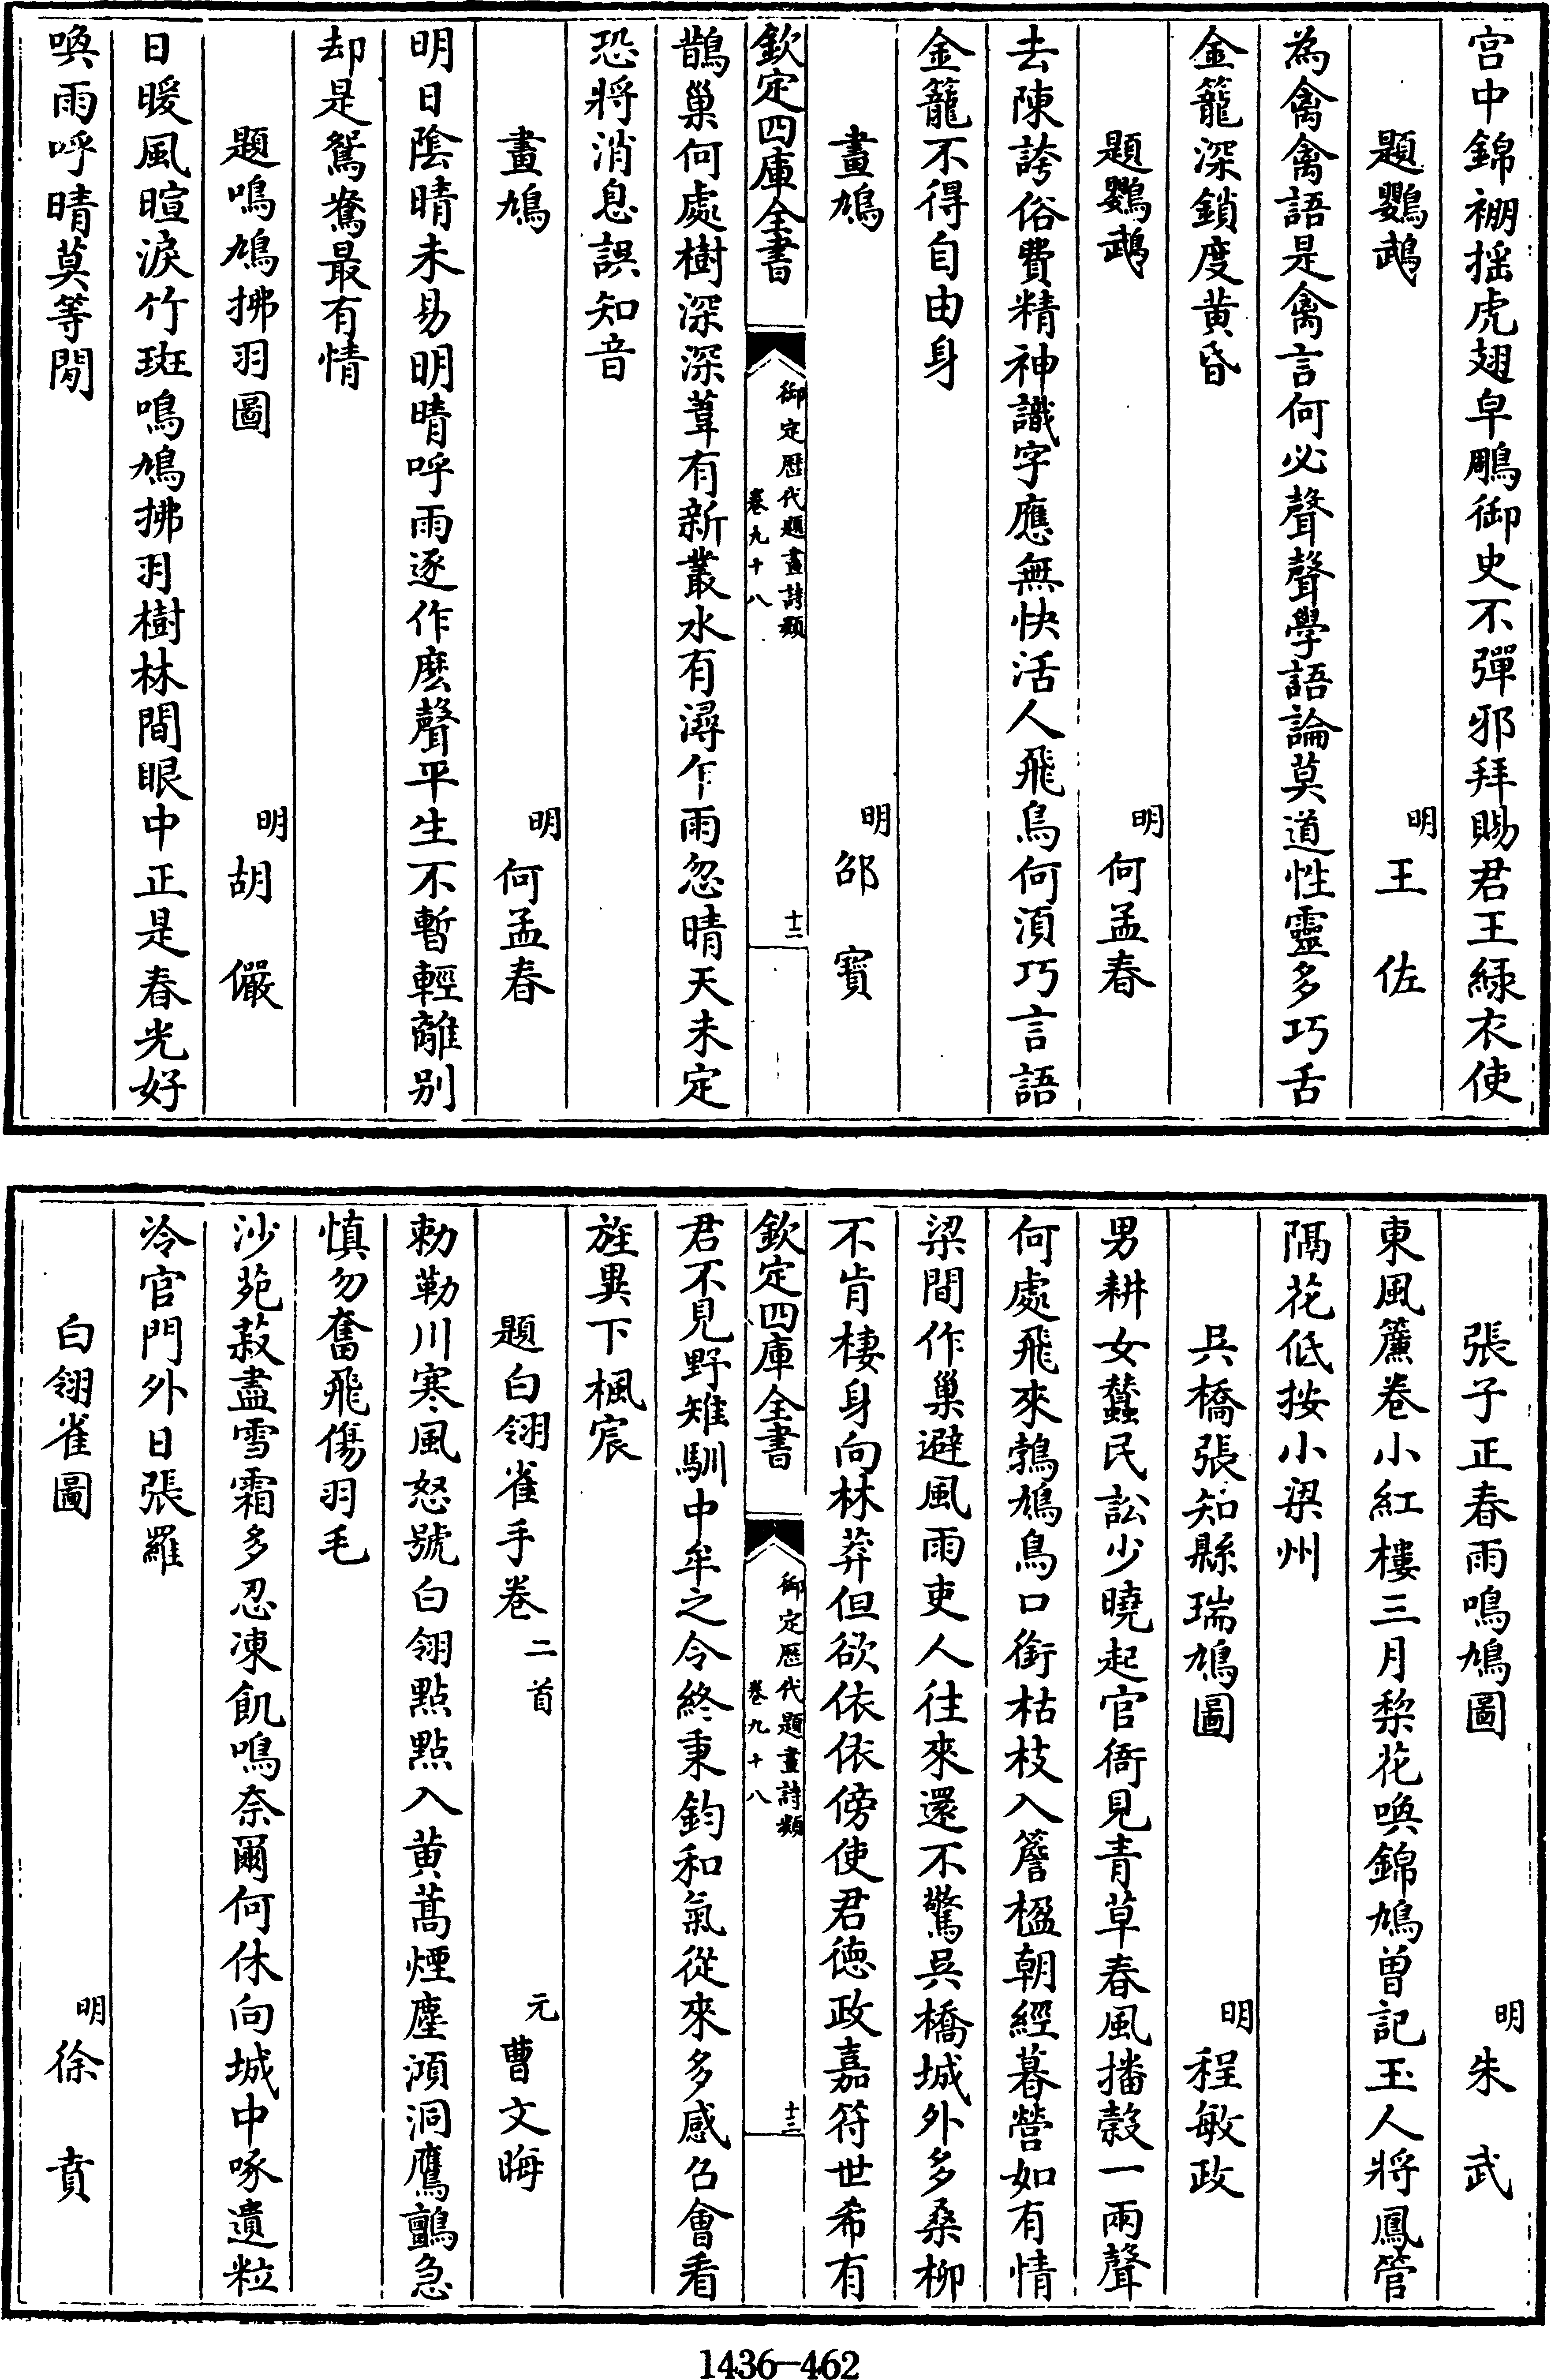 宫中錦棚揺虎翅皁鵰御史不彈邪拜賜君王緑衣使
題鸚鵡　明王佐
為禽禽語是禽言何必聲聲學語論莫道性靈多巧舌
金籠深鎖度黄昏
題鸚鵡　明何孟春
去陳誇俗費精神識字應無快活人飛鳥何湏巧言語
金籠不得自由身
畫鳩　明邵寶
欽定四庫全書　御定歴代題畫詩類卷九十八　十二
鵲巢何處樹深深葦有新叢水有潯乍雨忽晴天未定
恐將消息誤知音
畫鳩　明何孟春
明日隂晴未易明晴呼雨逐作麽聲平生不暫輕離别
却是鴛鴦最有情
題鳴鳩拂羽圖　明胡儼
日暖風暄淚竹斑鳴鳩拂羽樹林間眼中正是春光好
喚雨呼晴莫等閒
張子正春雨鳴鳩圖　明朱武
東風簾巻小紅樓三月棃花喚錦鳩曽記玉人將鳳管
隔花低按小梁州
吳橋張知縣瑞鳩圖　明程敏政
男耕女蠶民訟少曉起官衙見青草春風播榖一兩聲
何處飛來鵓鳩鳥口銜枯枝入簷楹朝經暮營如有情
梁間作巢避風雨吏人往來還不驚吳橋城外多桑柳
不肯棲身向林莽但欲依依傍使君徳政嘉符世希有
欽定四庫全書　御定歴代題畫詩類卷九十八　十三
君不見野雉馴中牟之令終秉鈞和氣從來多感召會看
旌異下楓宸
題白翎雀手巻二首　元曹文晦
勅勒川寒風怒號白翎點點入黄蒿煙塵澒洞鷹鸇急
慎勿奮飛傷羽毛
沙苑菽盡雪霜多忍凍飢鳴奈爾何休向城中啄遺粒
冷官門外日張羅
白翎雀圖　明徐賁
1436-462